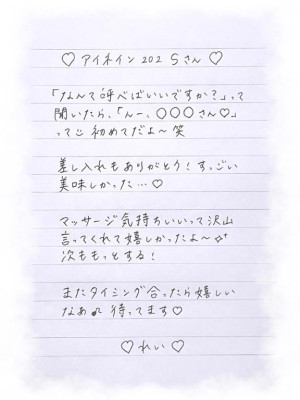 ♡ アイネイン 202 Sさん ♡
「なんて呼べばいいですか？」って
聞いたら、「んー、〇〇〇さん♡」
って☺ 初めてだよ〜笑
差し入れもありがとう！すっごい
美味しかった…♡
マッサージ気持ちいいって沢山
言ってくれて嬉しかったよ〜✧
次ももっとする！
またタイミング合ったら嬉しい
なぁ♫ 待ってます♡
♡ れい ♡